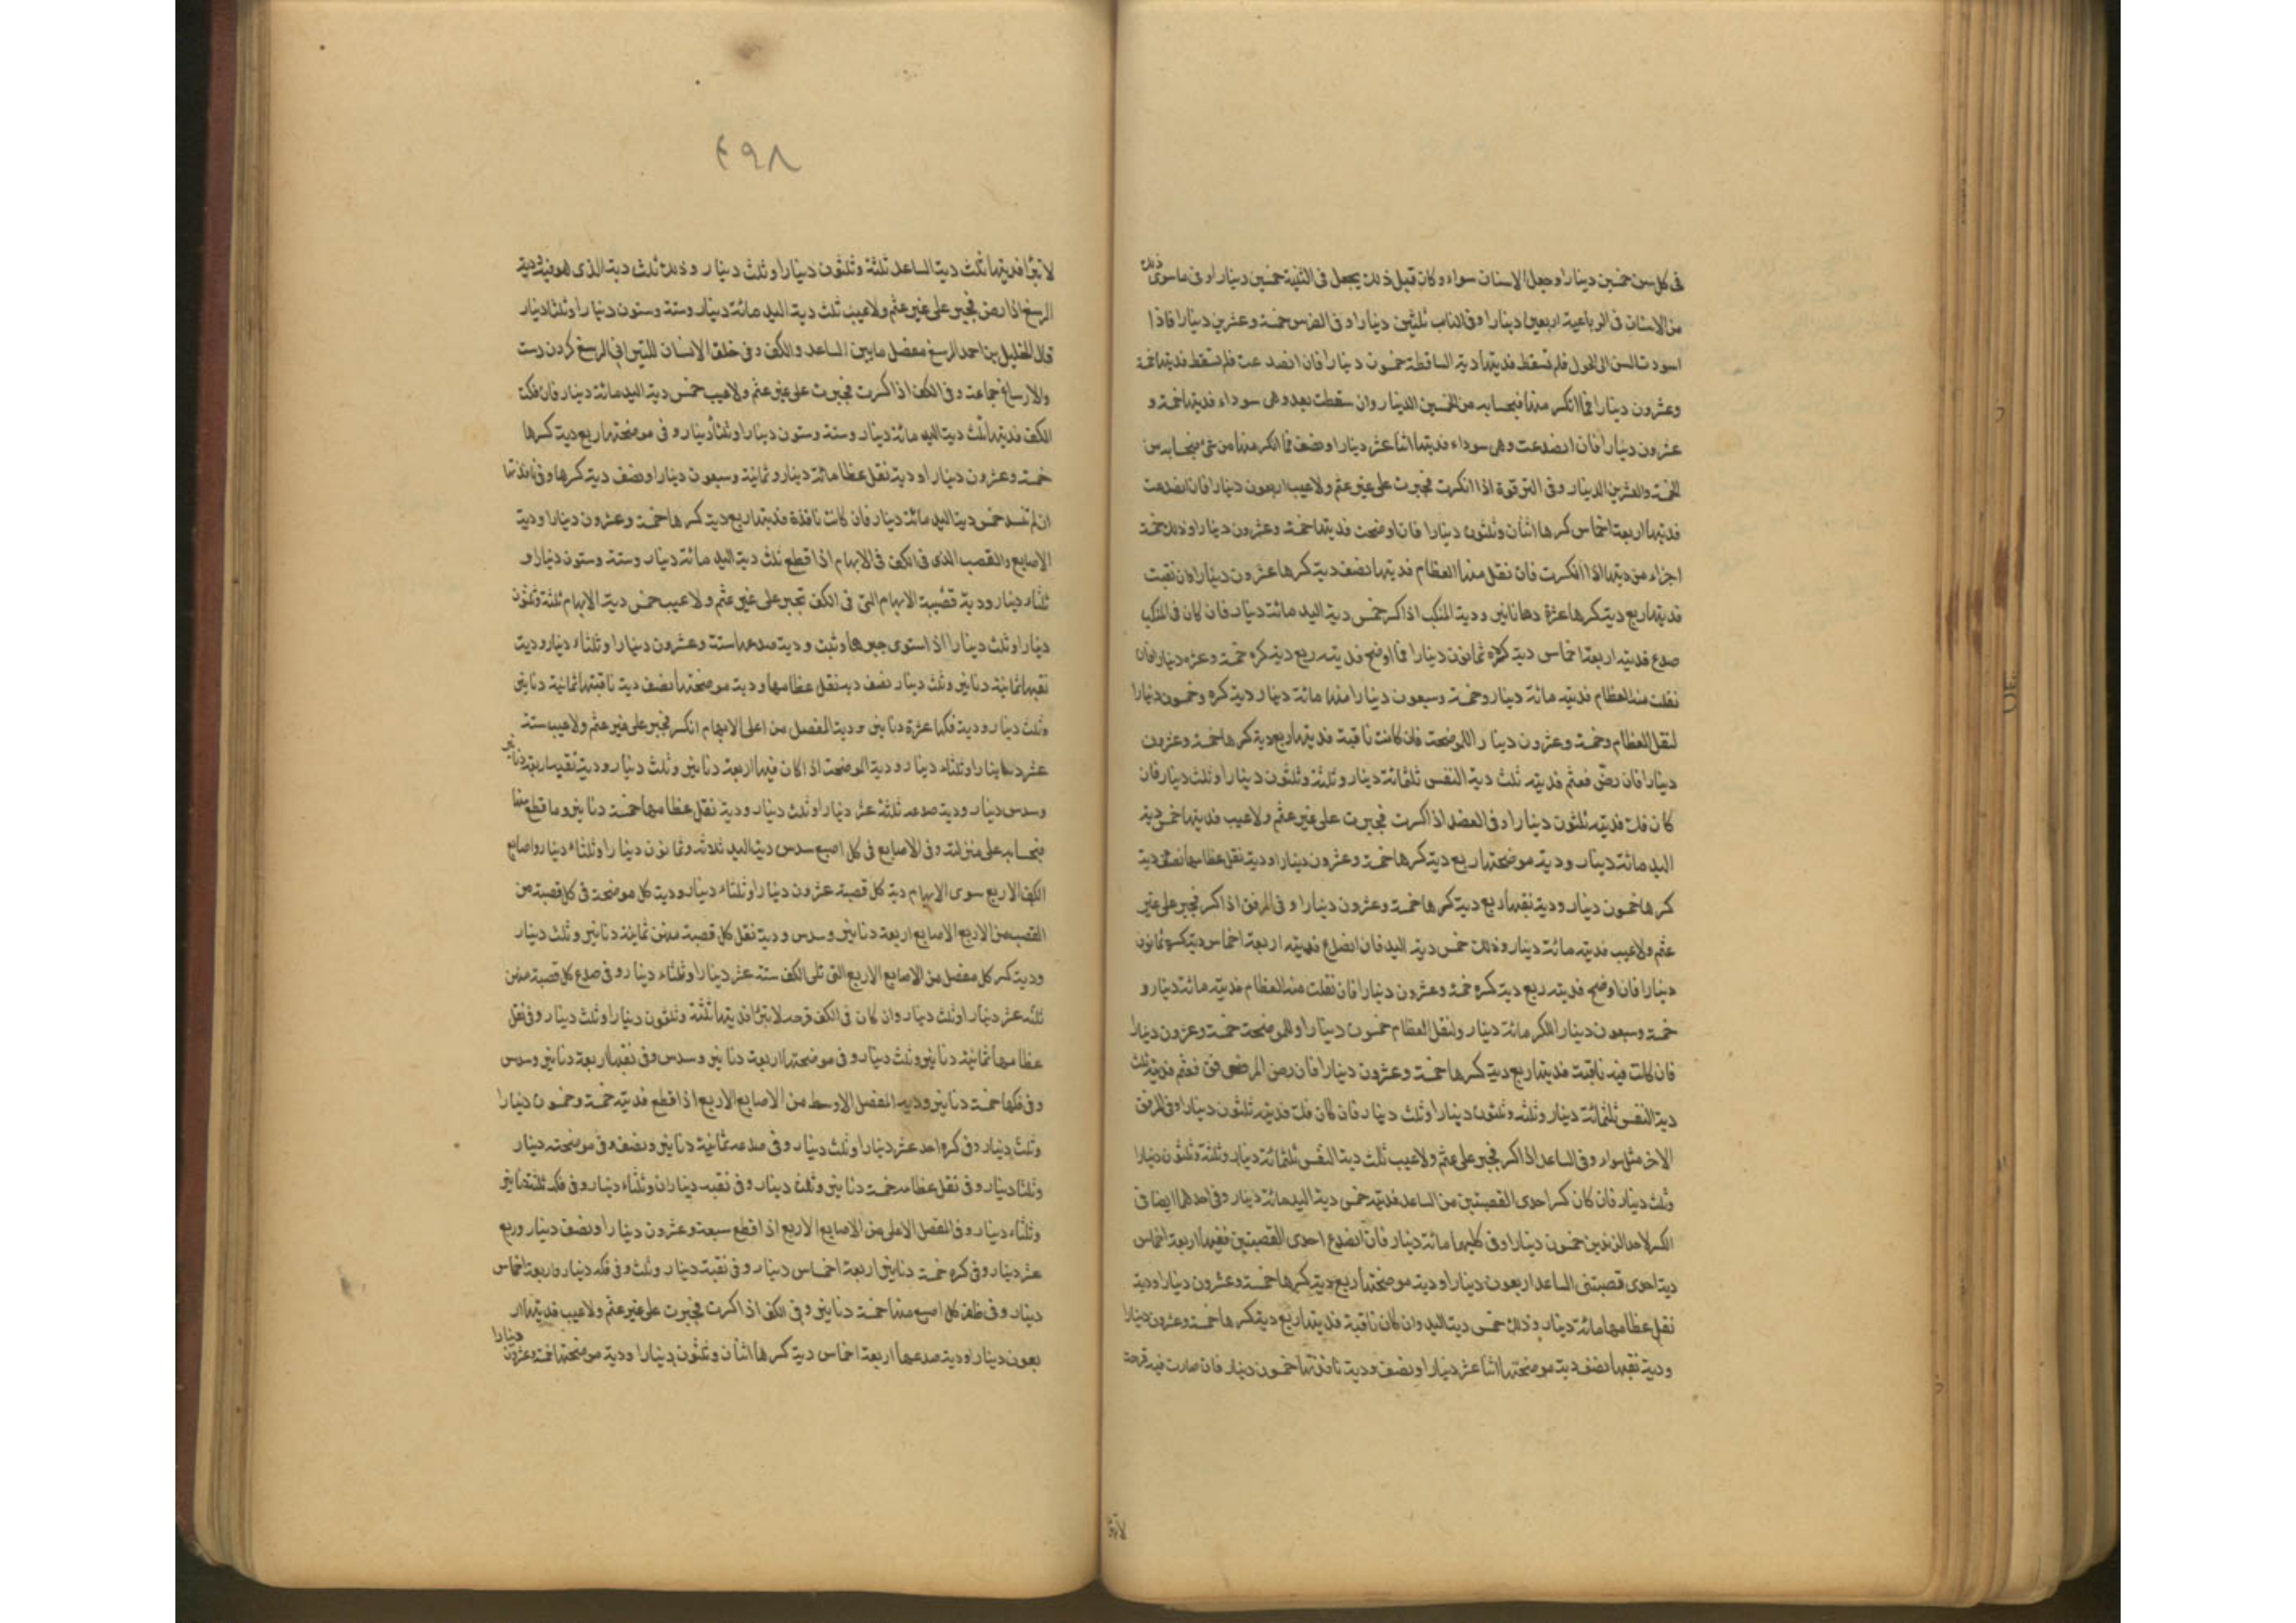 في كل سن خمسين دينارا وجعل الاسنان سواء وكان قبل ذلك يجعل في الثنية خمسين دينارا وفي ما سوى ذلك
من الاسنان في الرباعية اربعين دينارا وفي الناب ثلثين دينارا وفي الضرس خمسة وعشرين دينارا فاذا
اسودت السن الى الحول فلم تسقط فديتها دية الساقطة خمسون دينارا فان انصدعت فلم تسقط فديتها خمسة
وعشرون دينارا فما انكسر منها فبحسابه من الخمسين الدينار وان سقطت بعد وهي سوداء فديتها خمسة و
عشرون دينارا فان انصدعت وهي سوداء فديتها اثنا عشر دينارا ونصف فما انكسر منها من شئ فبحسابه من
الخمسة والعشرين الدينار وفي الترقوة اذا انكسرت فجبرت على غير عثم ولا عيب اربعون دينارا فان انصدعت
فديتها اربعة اخماس كسرها اثنان وثلثون دينارا فان اوضحت فديتها خمسة وعشرون دينارا وذلك خمسة
اجزاء من ديتها اذا انكسرت فان نقل منها العظام فديتها نصف دية كسرها عشرون دينارا فان نقبت
فديتها ربع دية كسرها عشرة دنانير ودية المنكب اذا كسر خمس دية اليد مائة دينار فان كان في المنكب
صدع فديته اربعة اخماس دية كسره ثمانون دينارا فما اوضح فديته ربع دية كسره خمسة وعشرون دينارا فان
نقلت منه العظام فديته مائة دينار وخمسة وسبعون دينارا منها مائة دينار دية كسره وخمسون دينارا
لنقل العظام وخمسة وعشرون دينار اللموضحة فان كانت ناقبة فديتها ربع دية كسرها خمسة وعشرون
دينارا فان رض فعثم فديته ثلث دية النفس ثلثمائة دينار وثلثة وثلثون دينارا وثلث دينار فان
كان فك فديته ثلثون دينارا وفي العضد اذا كسرت فجبرت على غير عثم ولا عيب فديتها خمس دية
اليد مائة دينار ودية موضحتها ربع دية كسرها خمسة وعشرون دينارا ودية نقل عظامها نصف دية
كسرها خمسون دينار ودية نقبها ربع دية كسرها خمسة وعشرون دينارا وفي المرفق اذا كسر فجبر على غير
عثم ولا عيب فديته مائة دينار وذلك خمس دية اليد فان انصدع فديته اربعة اخماس دية كسره ثمانون
دينارا فان اوضح فديته ربع دية كسره خمسة وعشرون دينارا فان نقلت منه العظام فديته مائة دينار و
خمسة وسبعون دينارا للكسر مائة دينار ولنقل العظام خمسون دينارا وللموضحة خمسة وعشرون دينارا
فان كانت فيه ناقبة فديتها ربع دية كسرها خمسة وعشرون دينارا فان رض المرفق فعثم فديته ثلث
دية النفس ثلثمائة دينار وثلثه وثلثون دينارا وثلث دينار فان كان فك فديته ثلثون دينارا وفي المرفق
الاخر مثل سواء وفي الساعد اذا كسر فجبر على عثم ولا عيب ثلث دية النفس ثلثمائة دينار وثلثة وثلثون دينارا
وثلث دينار فان كان كسر احدى القصبتين من الساعد فديته خمس دية اليد مائة دينار وفي احدهما ايضا في
الكسر لاحد الزندين خمسون دينارا وفي كليهما مائة دينار فان انصدع احدى القصبتين ففيها اربعة اخماس
دية احدى قصبتي الساعد اربعون دينارا ودية موضحتها ربع دية كسرها خمسة وعشرون دينارا ودية
نقل عظامها مائة دينار وذلك خمس دية اليد وان كان ناقبة فديتها ربع دية كسرها خمسة وعشرون دينارا
ودية نقبها نصف دية موضحتها اثنا عشر دينارا ونصف ودية نافذتها خمسون دينار فان صارت فيه قرحة
لا تبرأ
٤٩٨
لا تبرأ فديتها ثلث دية الساعد ثلثة وثلثون دينارا وثلث دينار وذلك ثلث دية الذي هو فيه ودية
الرسغ اذا رض فجبر على غير عثم ولا عيب ثلث دية اليد مائة دينار وستة وستون دينارا وثلثا دينار
قال الخليل بن احمد الرسغ مفصل ما بين الساعد والكف وفي خلق الانسان للتيزافي الرسغ كردن دست
والارساغ جماعة وفي الكف اذا كسرت فجبرت على غير عثم ولا عيب خمس دية اليد مائة دينار فان فكت
الكف فديتها ثلث دية اليد مائة دينار وستة وستون دينارا وثلثا دينار وفي موضحتها ربع دية كسرها
خمسة وعشرون دينارا ودية نقل عظامها مائة دينار وثمانية وسبعون دينارا ونصف دية كسرها وفي نافذتها
ان لم تنسد خمس دية اليد مائة دينار فان كانت نافذة فديتها ربع دية كسرها خمسة وعشرون دينارا ودية
الاصابع والقصب الذي في الكف في الابهام اذا قطع ثلث دية اليد مائة دينار وستة وستون دينارا و
ثلثاء دينار ودية قصبة الابهام التي في الكف تجبر على غير عثم ولا عيب خمس دية الابهام ثلثة وثلثون
دينارا وثلث دينارا اذا استوى جبرها وثبت ودية صدعها ستة وعشرون دينارا وثلثاء دينار ودية
نقبها ثمانية دنانير وثلث دينار نصف دية نقل عظامها ودية موضحتها نصف دية ناقبتها ثمانية دنانير
وثلث دينار ودية فكها عشرة دنانير ودية المفصل من اعلى الابهام انكسر فجبر على غير عثم ولا عيب ستة
عشر دينارا وثلثاء دينار ودية الموضحة اذا كان فيها اربعة دنانير وثلث دينار ودية نقبه اربعة دنانير
وسدس دينار ودية صدعه ثلثة عشر دينارا وثلث دينار ودية نقل عظامها خمسة دنانير وما قطع منها
فبحسابه على منزلته وفي الاصابع في كل اصبع سدس دية اليد ثلاثة وثمانون دينارا وثلثاء دينار واصابع
الكف الاربع سوى الابهام دية كل قصبة عشرون دينارا وثلثاء دينار ودية كل موضحة في كل قصبة من
القصب من الاربع الاصابع اربعة دنانير وسدس ودية نقل كل قصبة منهن ثمانية دنانير وثلث دينار
ودية كسر كل مفصل من الاصابع الاربع التي تلي الكف ستة عشر دينارا وثلثاء دينار وفي صدع كل قصبة منهن
ثلثه عشر دينارا وثلث دينار وان كان في الكف قرحه لا تبرأ فديتها ثلثة وثلثون دينارا وثلث دينار وفي نقل
عظامها ثمانية دنانير وثلث دينار وفي موضحتها اربعة دنانير وسدس وفي نقبها اربعة دنانير وسدس
وفي فكها خمسة دنانير ودية المفصل الاوسط من الاصابع الاربع اذا قطع فديته خمسة وخمسون دينارا
وثلث دينار وفي كسره احد عشر دينارا وثلث دينار وفي صدعه ثمانية دنانير ونصف وفي موضحته دينار
وثلثا دينار وفي نقل عظامه خمسة دنانير وثلث دينار وفي نقبه ديناران وثلثاء دينار وفي فكه ثلثة دنانير
وثلثاء دينار وفي المفصل الاعلى من الاصابع الاربع اذا قطع سبعة وعشرون دينارا ونصف دينار وربع
عشر دينار وفي كسره خمسة دنانير اربعة اخماس دينار وفي نقبه دينار وثلث وفي فكه دينار واربعة اخماس
دينار وفي ظفر كل اصبع منها خمسة دنانير وفي الكف اذا كسرت فجبرت على غير عثم ولا عيب فديتها ار
بعون دينارا ودية صدعها اربعة اخماس دية كسرها اثنان وثلثون دينارا ودية موضحتها خمسة وعشرون دينارا